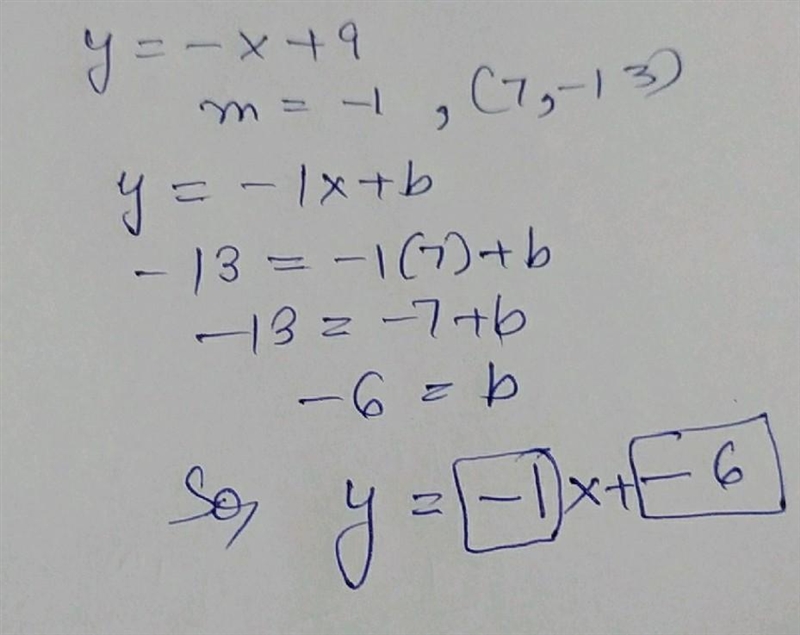 y = -x + 9
m = -1 , (7, -13)
y = -1x + b
-13 = -1(7) + b
-13 = -7 + b
-6 = b
So, y = -1 x + -6